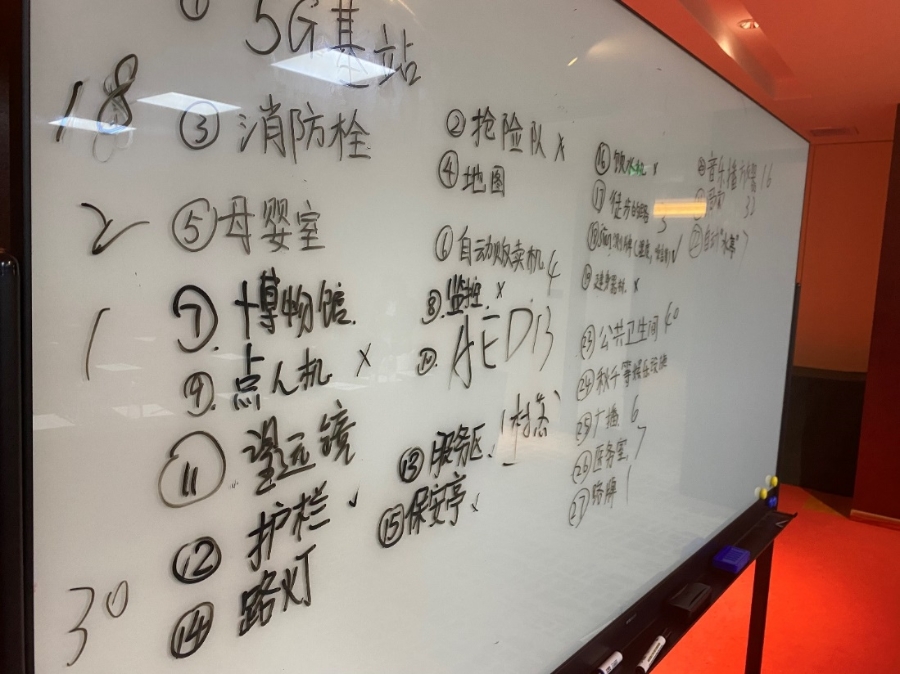 ① 5G基站
18 ③ 消防栓
2 ⑤ 母婴室
1 ⑦ 博物馆
⑨ 点人机 ×
⑪ 望远镜
⑫ 护栏 ✓
30 ⑭ 路灯
② 抢险队 ×
④ 地图
⑥ 自动贩卖机 4
⑧ 监控 ×
⑩ AED 13
⑬ 服务区 ✓
⑮ 保安亭 ✓
⑯ 饮水机 ×
⑰ 5
⑱ ✓
⑲ ×
㉓ 公共卫生间 40
㉔ 秋千等娱乐设施
㉕ 广播 6
㉖ 医务室 7
㉗ 1
音乐播 16
33
自动"水 " 7